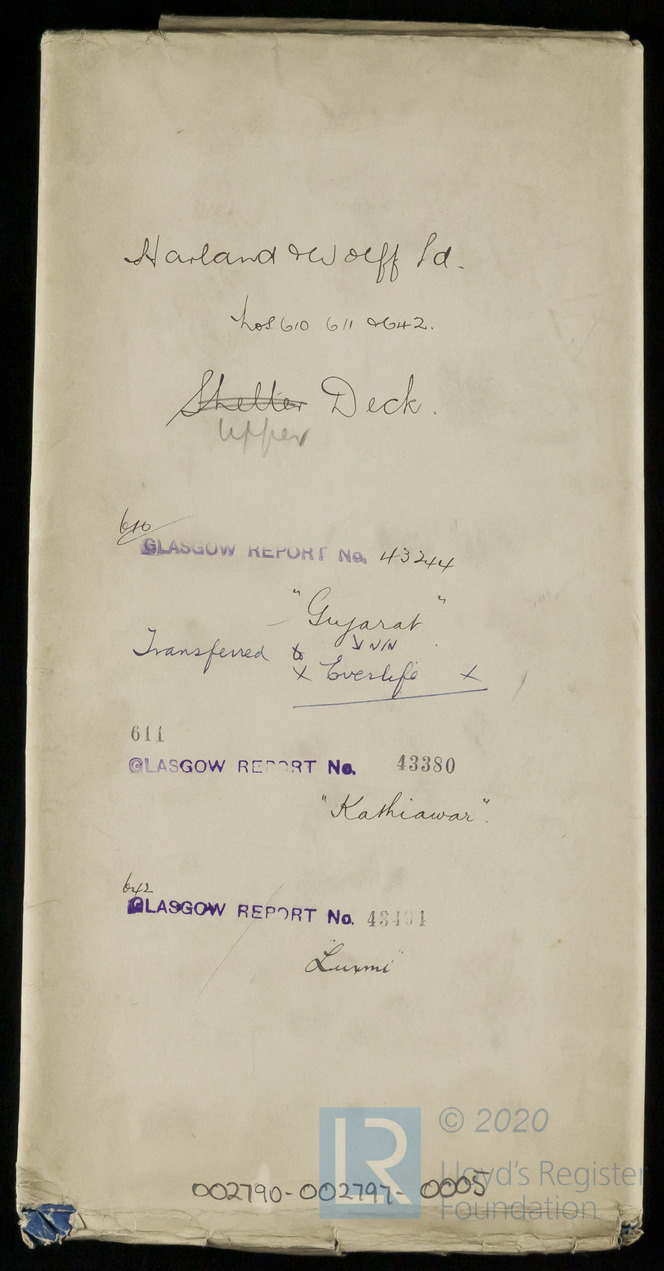 Harland & Wolff Ld.
Nos 610 611 & 642.
Shelter Deck.
Upper
610
GLASGOW REPORT No. 43244
"Gujarat"
Transferred to
x Everlife x
611
GLASGOW REPORT No. 43380
"Kathiawar".
642
GLASGOW REPORT No.
"Luxmi"
© 2020
LR
Lloyd's Register
Foundation
002790-002797-0005